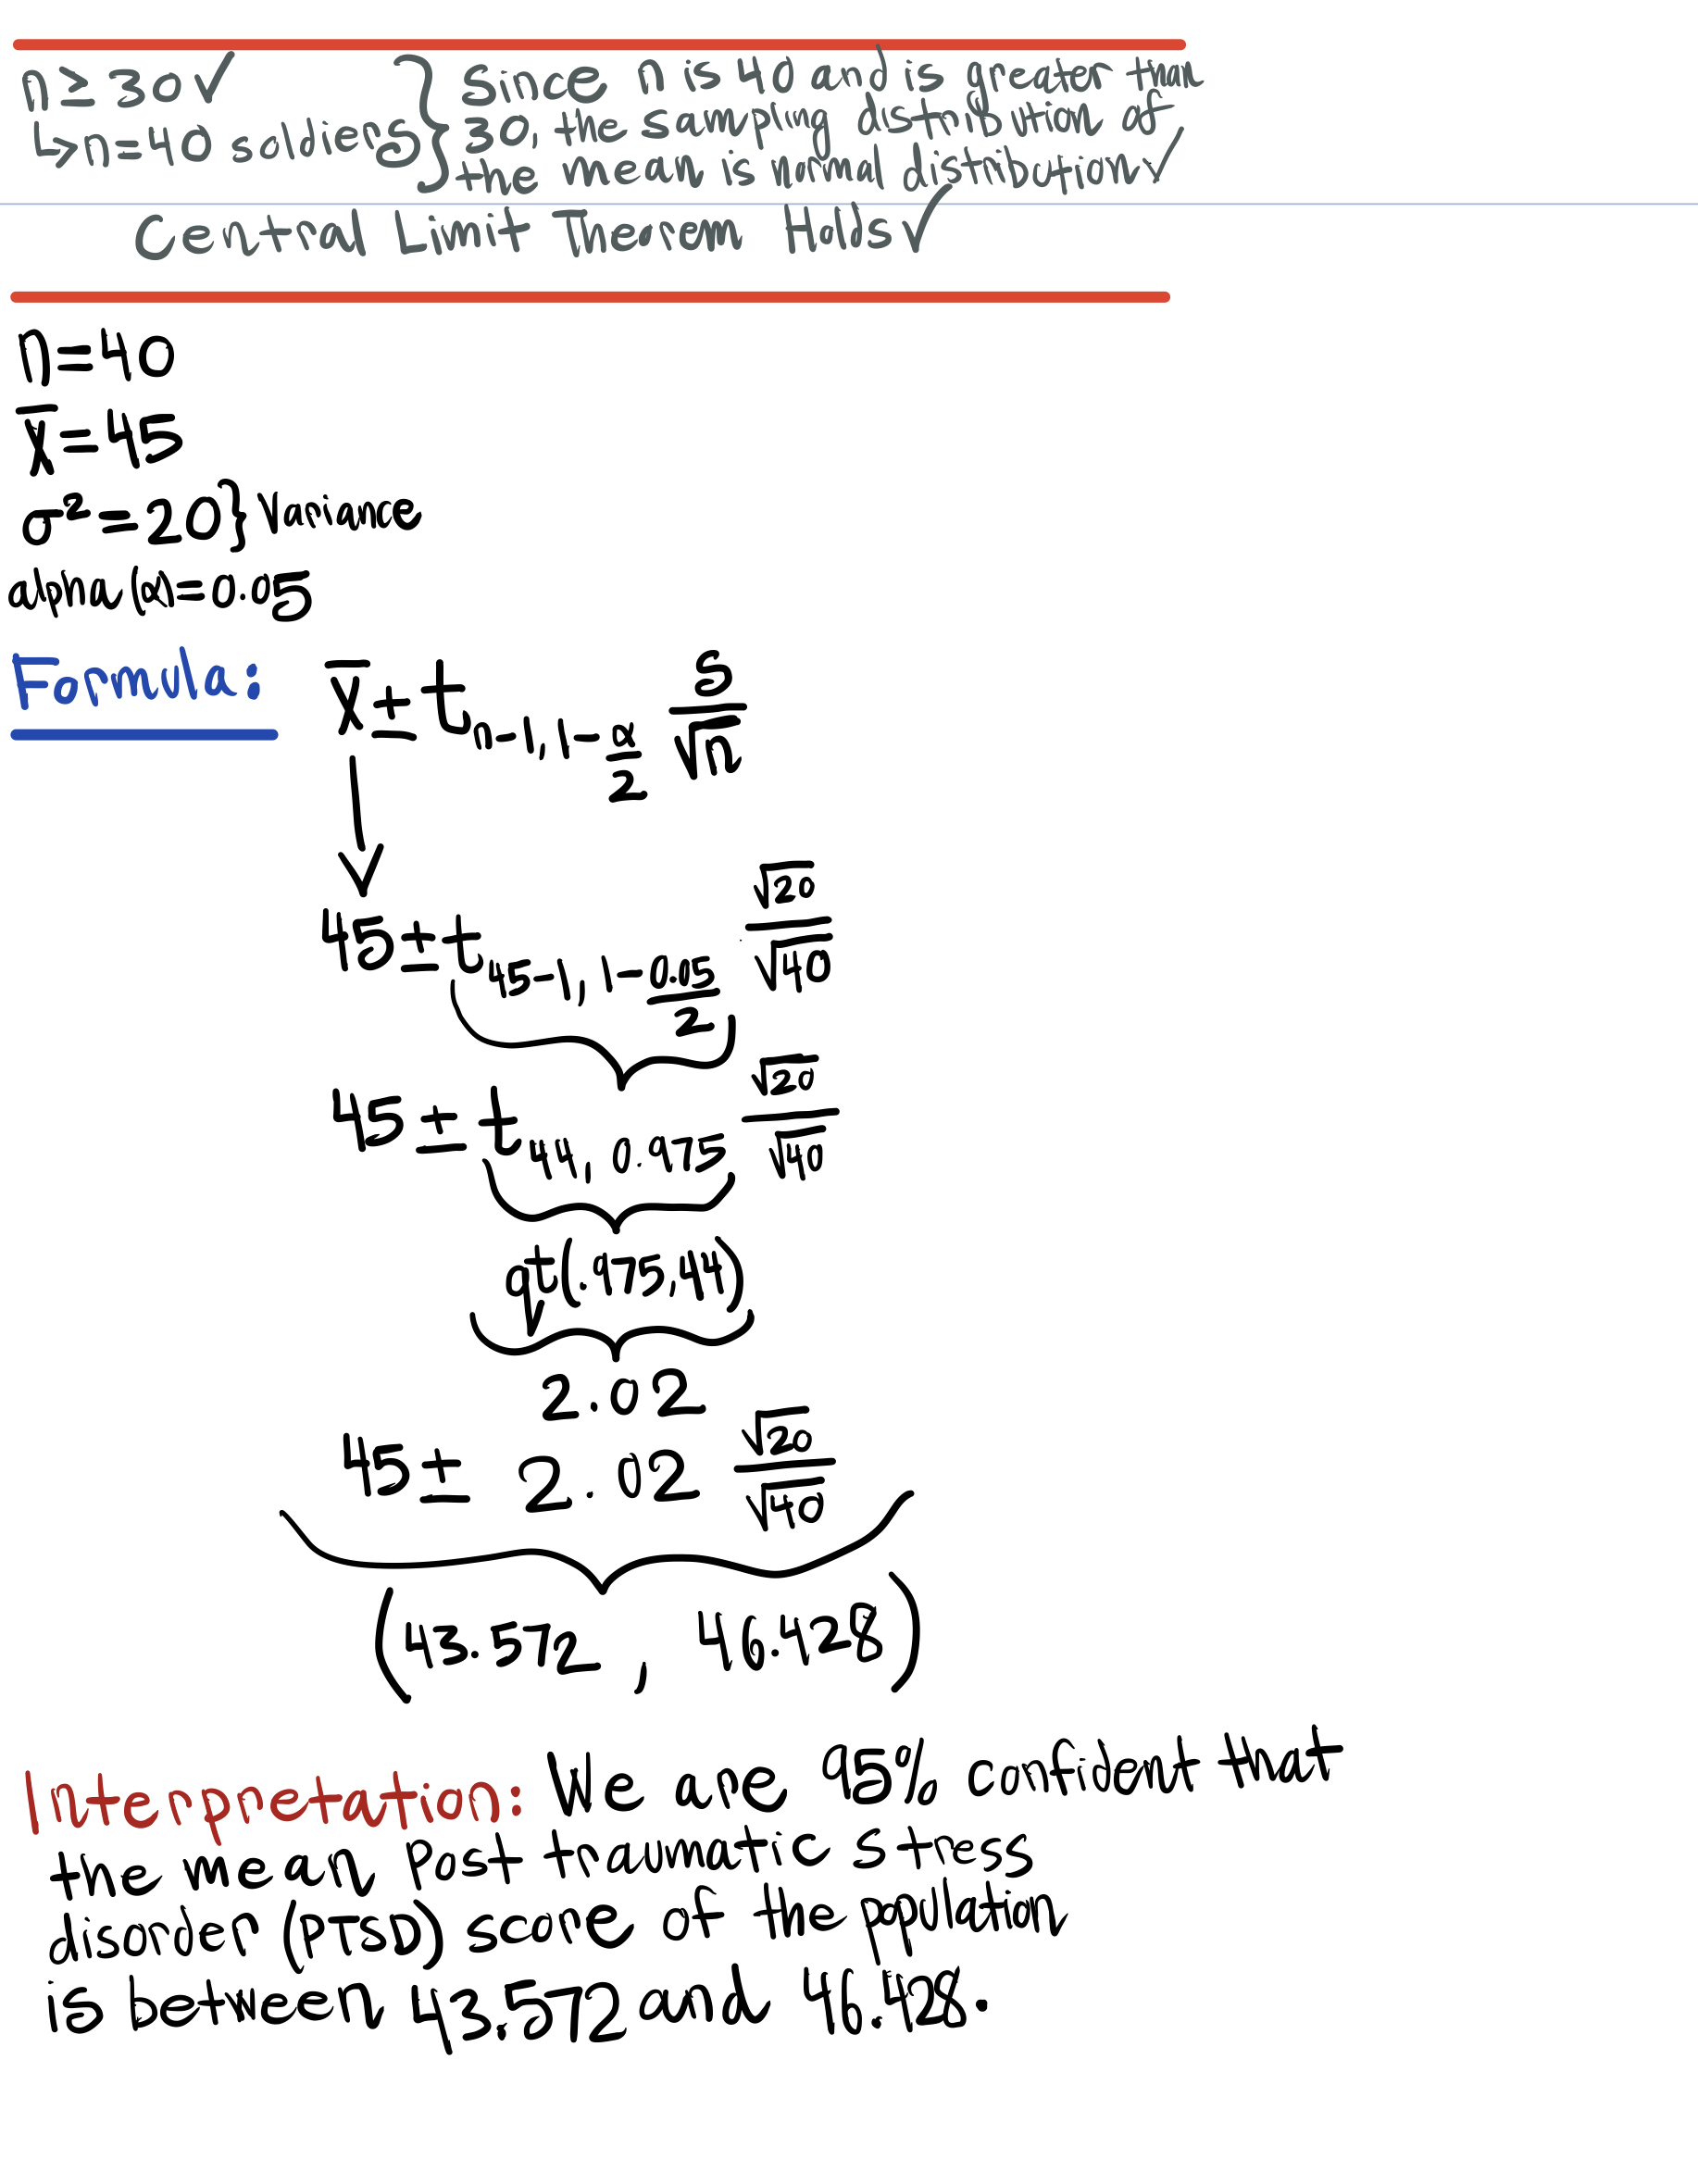 n ≥ 30 ✓
↳ n=40 soldiers
} Since n is 40 and is greater than
30, the sampling distribution of
the mean is normal distribution ✓
Central Limit Theorem Holds ✓
n=40
x̄=45
σ²=20} Variance
alpha (α)=0.05
Formula: x̄ ± t n-1, 1-α/2 s/√n
45 ± t 45-1, 1-0.05/2 √20/√40
45 ± t 44, 0.975 √20/√40
qt(.975,44)
2.02
45 ± 2.02 √20/√40
(43.572 , 46.428)
Interpretation: We are 95% confident that
the mean Post traumatic stress
disorder (PTSD) score of the population
is between 43.572 and 46.428.